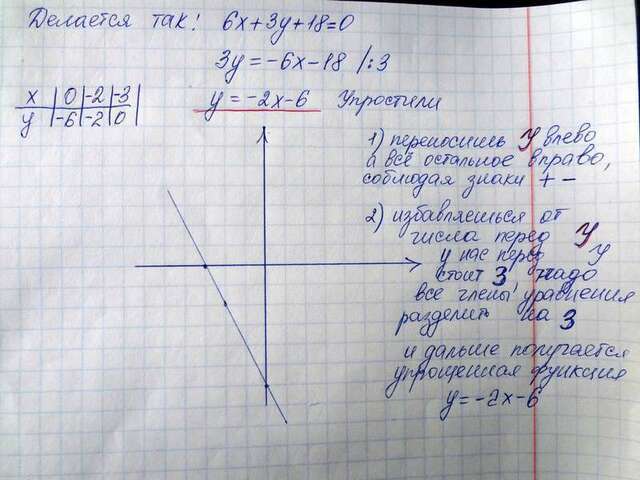 Делается так: 6x+3y+18=0
3y=-6x-18 /:3
x | 0 | -2 | -3 |
y | -6 | -2 | 0 |
y=-2x-6 Упростили
1) переносишь У влево
а всё остальное вправо,
соблюдая знаки + -
2) избавляешься от
числа перед У
у нас перед У
стоит 3 надо
все члены уравнения
разделить на 3
и дальше получается
упрощенная функция
y=-2x-6